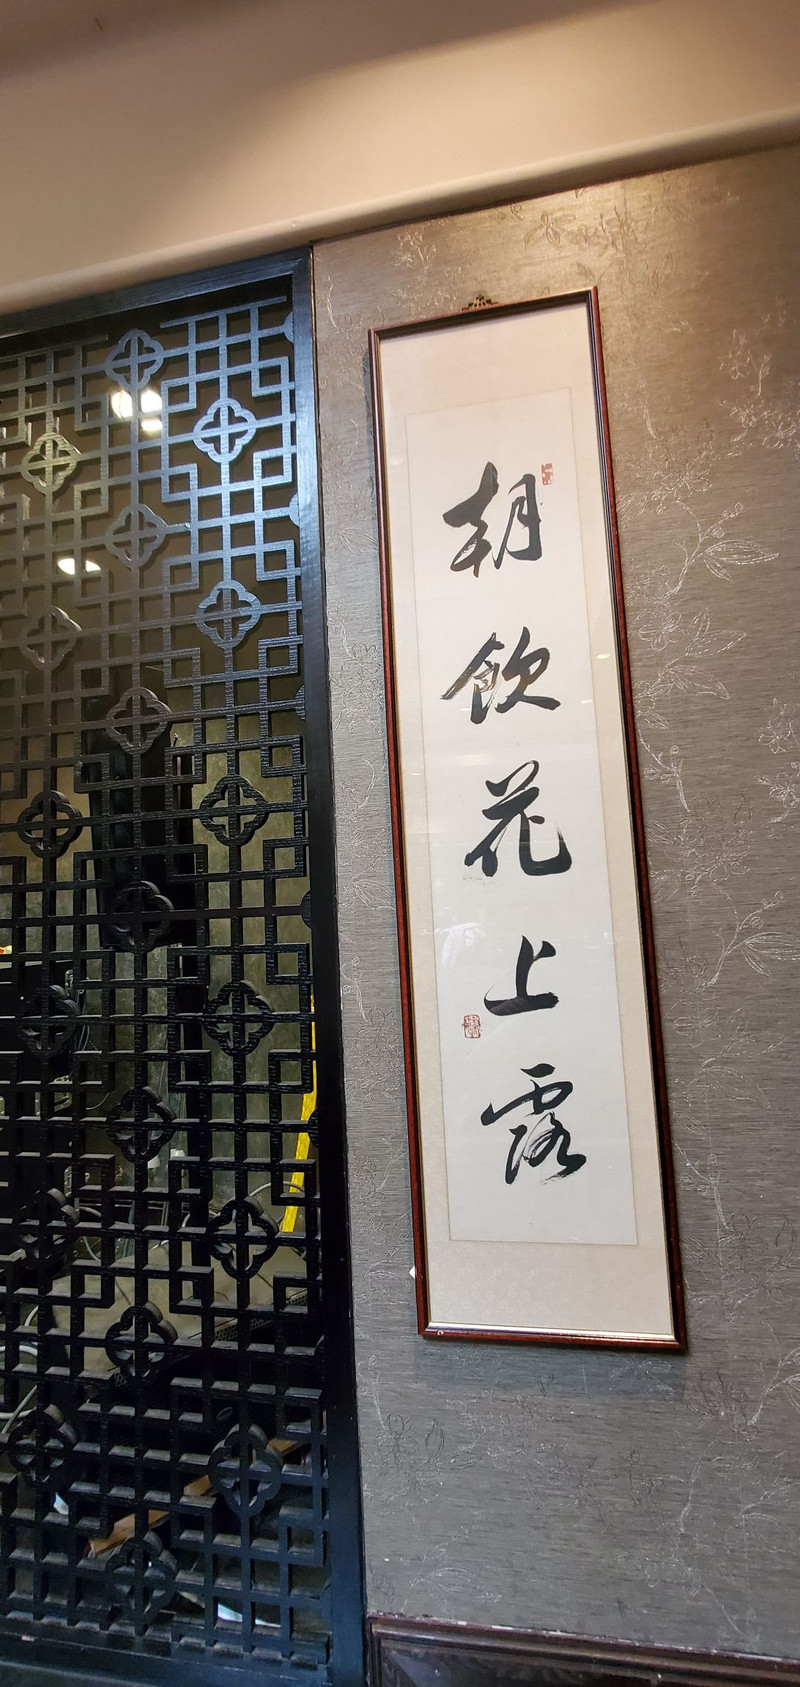 朝飲花上露